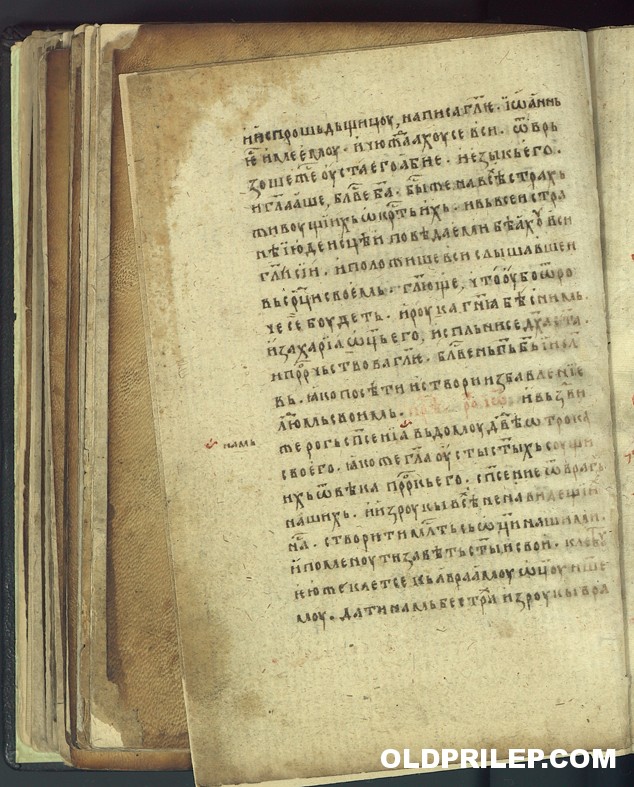 и҆спрошьдьщицоу, написа гл҃ѥ. і҆ѡа҆ннь
и҆ме ѥмоу. и҆ чюждаахоу се вси. ѿврь
зоше же оуста ѥго абиѥ. и ѥзыкь ѥго.
и гл҃ааше, бл҃ве ба҃. бы҃ же на всѣ страхь
живоущіихь ѡкр҃ть ихь. и вь всеи стра
нѣ іюдеисцѣи повѣдаеми бѣахоу вси
гл҃и сіи. и положише вси слышавшеи
вь ср҃ци своемь. гл҃юще, что оубо ѡтро
че се боудеть. и роука гн҃ıа бѣ с нимь.
и захаріа ѡц҃ь его, испльни се дх҃а ст҃а
и прр҃чьствова гл҃ѥ. бл҃вень гь бь іи҃сл
вь. ıако посѣти и створи избавленіе
людемь своимь. и вьзьви
намь
же рогь спсениıа вь домоу дв҃дѣ ѡтрока
своего. ıако же гл҃а оусты ст҃ыхь соущи
ихь ѿ вѣка прр҃кь его. спс҃ение ѿ врагь
нашихь. и из роукы всѣ ненавидещіи
на҃. створити мл҃ть сь ѡц҃и нашими.
и поменоути завѣть ст҃ыи свои. клетвоу
ѥюже клет се кь авраамоу ѡц҃оу наше
моу. дати намь бес стра из роукы вра
OLDPRILEP.COM